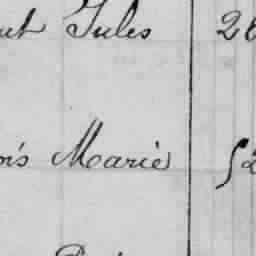 ut Jules 26
ois Marie 52